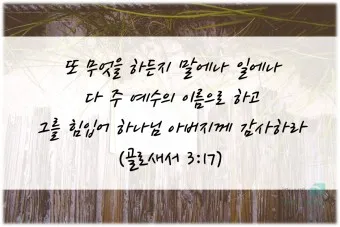 또 무엇을 하든지 말에나 일에나
다 주 예수의 이름으로 하고
그를 힘입어 하나님 아버지께 감사하라
(골로새서 3:17)